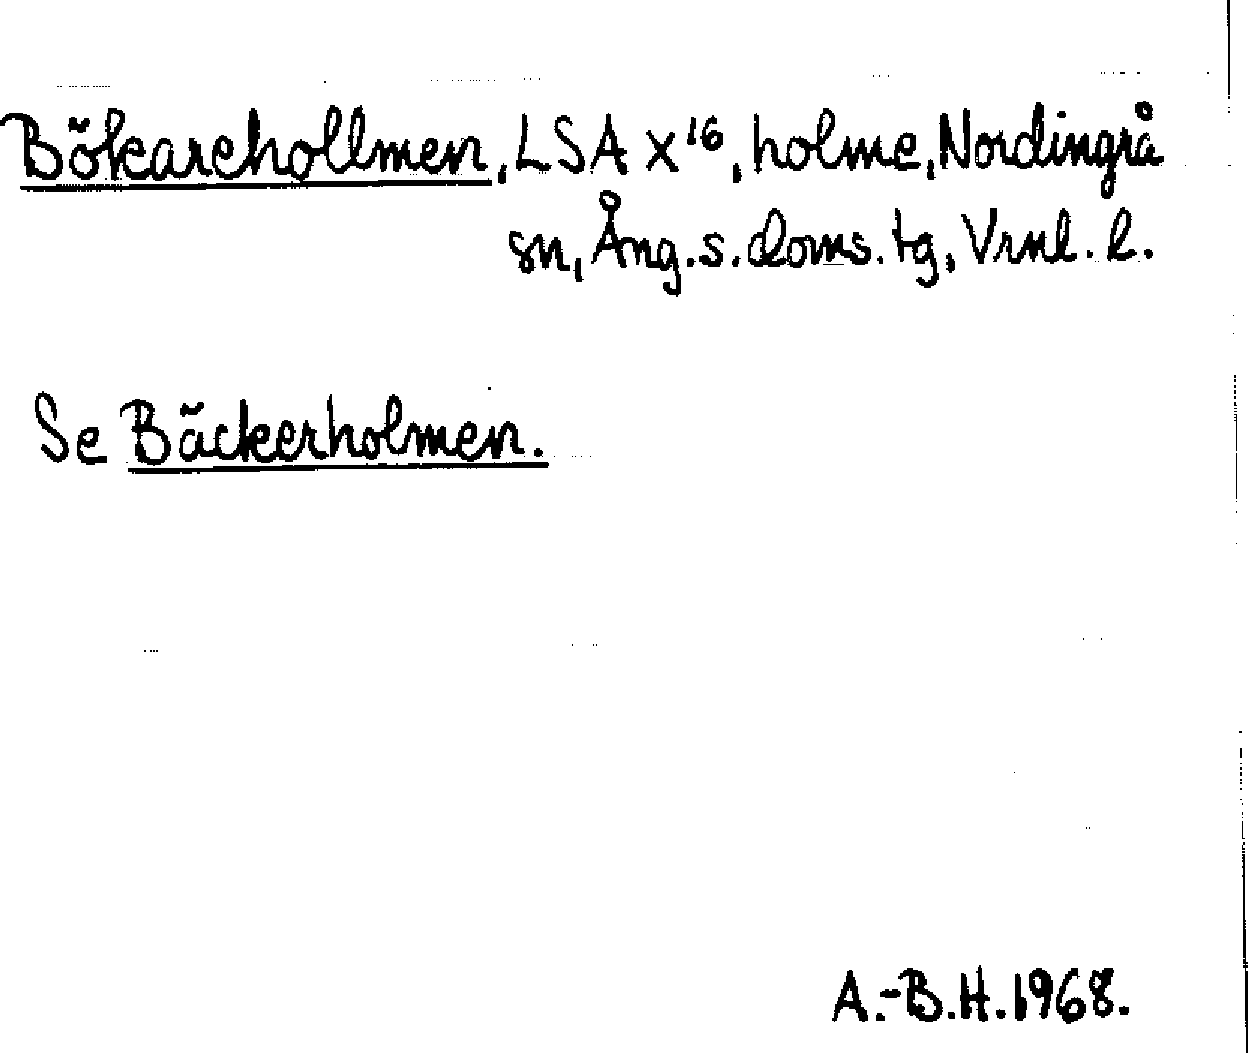 Bökarehollmen, LSA X¹⁶, holme, Nordingrå
sn, Ång. s. doms. tg, Vrnl. l.
Se Bäckerholmen.
A.-B.H. 1968.